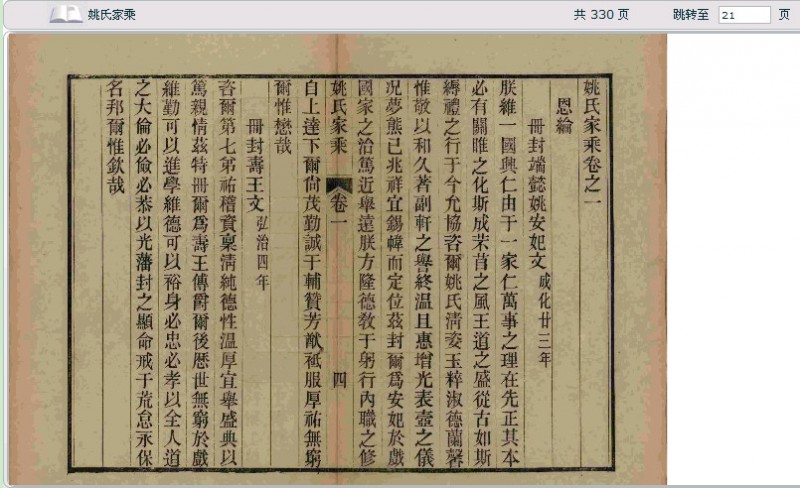 姚氏家乘
共 330 页
跳转至 21 页
姚氏家乘卷之一
恩綸
冊封端懿姚安妃文 成化廿三年
朕維一國興仁由于一家仁萬事之理在先正其本
必有關雎之化斯成芣苢之風王道之盛從古如斯
縟禮之行于今允協咨爾姚氏淸姿玉粹淑德蘭馨
惟敬以和久著副軒之譽終温且惠增光表壼之儀
况夢熊已兆祥宜錫幃而定位茲封爾爲安妃於戲
國家之治篤近舉遠朕方隆德敎于躬行內職之修
姚氏家乘 卷一 四
白上達下爾尙茂勤誠于輔贊芳猷祗服厚祐無窮
爾惟懋哉
冊封壽王文 弘治四年
咨爾第七弟祐榰資稟淸純德性温厚宜舉盛典以
篤親情茲特冊爾爲壽王傳爵爾後歷世無窮於戲
維勤可以進學維德可以裕身必忠必孝以全人道
之大倫必儉必恭以光藩封之顯命戒于荒怠永保
名邦爾惟欽哉